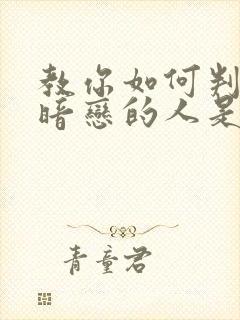 教你如何判
暗戀的人是
青童君